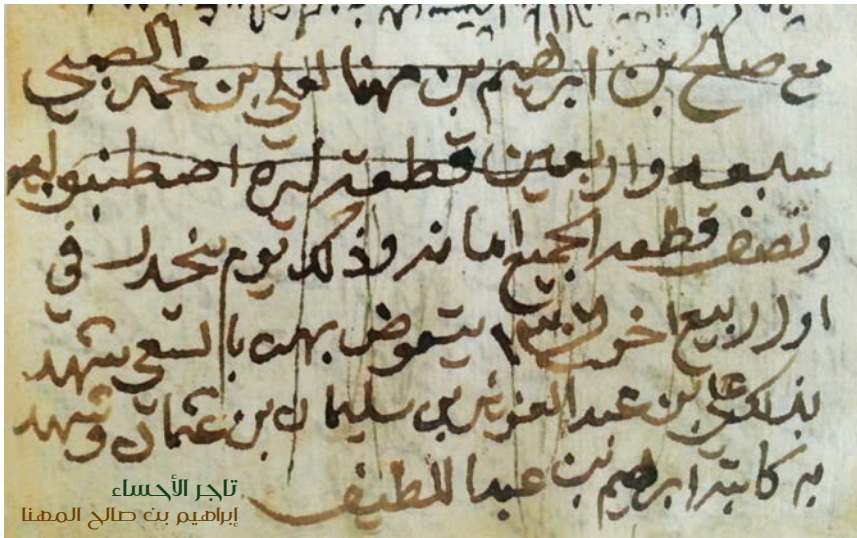 مع صالح بن ابراهيم بن مهنا لعلي بن محمد الصبحي
سبعه واربعين قطعة ليرة اصطنبوليه
ونصف قطعه الجميع امانه وذلك يوم ينحدر في
اول ربيع اخر يتعوض بهن بالسعي شهد
بذلك علي بن عبد العزيز بن سليمان بن عثمان وشهد
به كاتبه ابراهيم بن عبد اللطيف
تاجر الأحساء
إبراهيم بن صالح المهنا